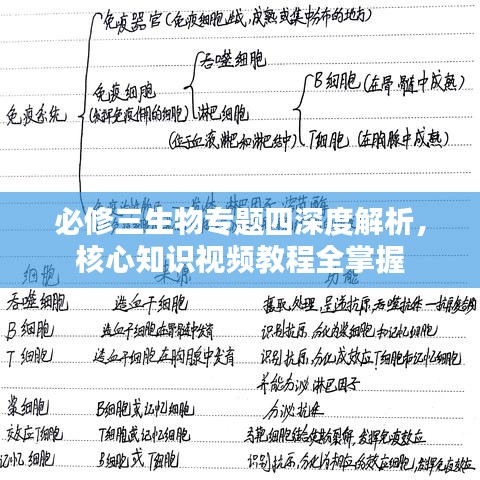 免疫器官(免疫细胞生成,成熟或集中分布的地方)
吞噬细胞
免疫细胞
B细胞(在骨髓中成熟)
(发挥免疫作用的细胞)
淋巴细胞
免疫系统
(位于血液,淋巴和淋巴结中)
T细胞(在胸腺中成熟)
必修三生物专题四深度解析,
核心知识视频教程全掌握
细胞 来源 功能
吞噬细胞 造血干细胞 摄取,处理,呈递抗原,吞噬抗体
B细胞 造血干细胞在骨髓中发育 识别抗原,分化为浆细胞和记忆细胞
T细胞 造血干细胞在胸腺中发育 识别抗原,分化成效应T细胞和记忆细胞
并能分泌淋巴因子
浆细胞 B细胞或记忆细胞 分泌抗体
效应T细胞 T细胞或记忆细胞 发挥免疫效应
记忆细胞 B细胞或T细胞 识别抗原,分化为相应的效应细胞,发挥免疫效应